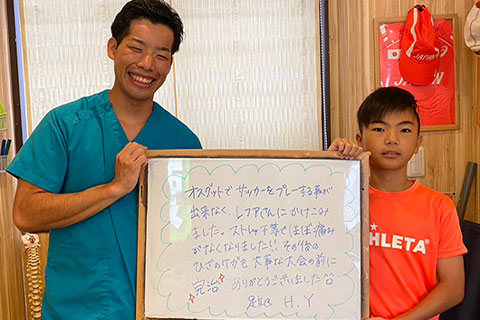 JAPAN
オスグットでサッカーをプレーする事が
出来なく、レフアさんにかけこみ
ました。ストレッチ等でほぼ痛み
がなくなりました!その後の
ひざのけがも大事な大会の前に
完治 ありがとうございました
H.Y
THLETA